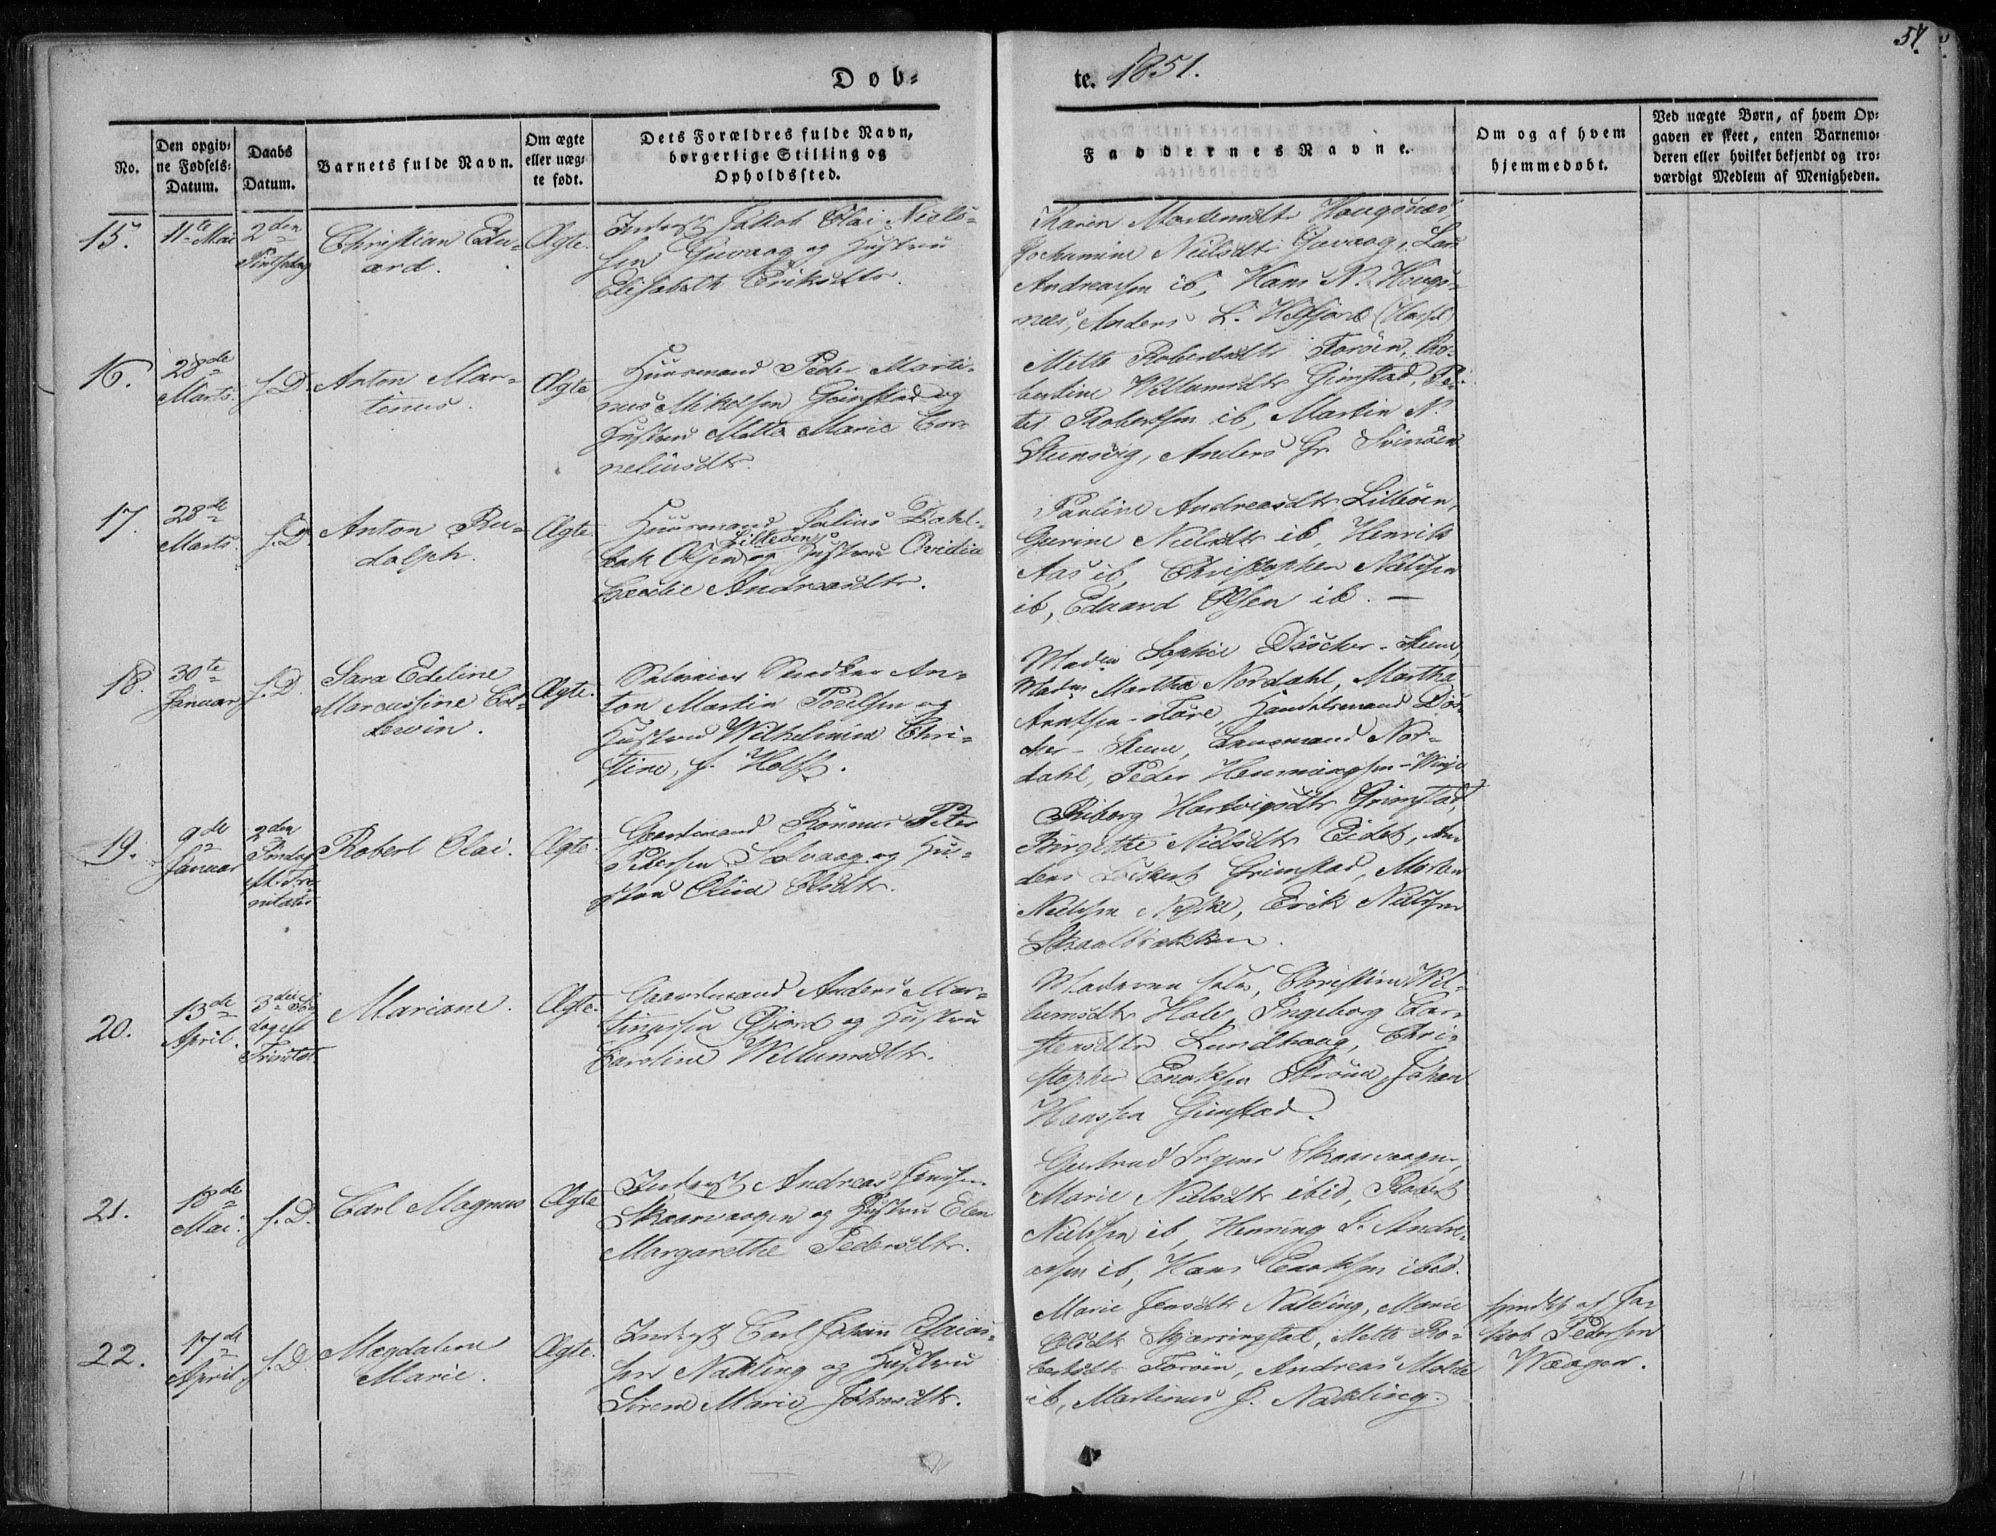 57.
Døb=
te. 1851.
No.
Den opgiv=
ne Fødsels=
Datum.
Daabs
Datum.
Barnets fulde Navn.
Om ægte
eller uæg=
te født.
Dets Forældres fulde Navn,
borgerlige Stilling og
Opholdssted.
Faddernes Navne.
Om og af hvem
hjemmedøbt.
Ved uægte Børn, af hvem Op=
gaven er skeet, enten Barnemo=
deren eller hvilket bekjendt og tro=
værdigt Medlem af Menigheden.
15.
11te Mai
2den
Pintsedag
Christian Edu-
ard.
Ægte.
Inderst Jakob Olai Niels-
sen Guvaag og Hustru
Elisabeth Eriksdtr.
Karen Mortensdtr Haugsnæs,
Jochamine Nielsdtr Guvaag, Lars
Andreassen ib, Hans N. Haugs-
næs, Anders L. (Hassel)
16.
28de
Marts.
s.D.
Anton Mar-
tinus.
Ægte
Huusmand Peder Marti-
nus Mikelsen Grimstad og
Hustru Mette Marie Cor-
neliusdtr.
Mette Robertsdtr Forøen, Ro-
bertine Willumsdtr Grimstad, Pe-
ter Robertsen ib, Martin N.
Steensvig, Anders Gr. Svinøen
17.
28de
Marts.
s.D.
Anton Ru-
dolph.
Ægte.
Huusmand Julius Dahl-
bak Olsen og Hustru Ovidia
Lilleøen
Cecilie Andreasdtr.
Pauline Andreasdtr Lilleøen,
Gurine Nielsdtr ib, Henrik
Aas ib, Christopher Nielsen
ib, Eduard Olsen ib. —
18.
30te
Januar
s.D.
Sara Edeline
Marcussine Col-
bwin.
Ægte.
Anton Martin Poulsen og
Hustru Wilhelmina Chri-
stine, f. Holst.
Madm Sophie Döscher - Steene,
Madm Martha Nordahl, Martha
Arntsen - Føre, Handelsmand Dös-
cher - Steene, Lensmand Nor-
dahl, Peder Henningsen - Vinje
19.
9de
Januar
2den
Søndag
Tri-
nitatis
Robert Olai.
Ægte.
Gaardmand Rønnus Peter
Pedersen Solvaag og Hu-
stru Olina Olsdtr.
Riberg Hartvigsdtr Grimstad,
Birgithe Nielsdtr Eidet, An-
ders Grimstad, Morten
Nielsen Nyke, Erik Nielsen
Skaalbrækken.
20.
13de
April.
3die Søn-
dag eft
Trinitat.
Mariane.
Ægte.
Gaardmand Anders Mar-
tinussen Fjord og Hustru
Caroline Willumsdtr.
Moderen selv, Christine Wil-
lumsdtr Hole, Ingeborg Car-
stensdtr Lundhaug, Chri-
stopher Enoksen Skrøva, Johan
Hanssen Grimstad.
21.
18de
Mai.
s.D.
Carl Magnus
Ægte
Inderst Andreas Jenssen
Skaarvaagen og Hustru Elen
Margarethe Pedersdtr.
Gertrud Irgens Skaarvaagen,
Marie Nielsdtr ibid, Robert
Nielsen ib, Henning J. Andre-
assen ib, Hans Enoksen ibid.
22.
17de
April
s.D.
Magdalena
Marie.
Ægte.
Inderst Carl Johan Elias-
sen Nakling og Hustru
Sirene Marie Johnsdtr.
Marie Jensdtr Nakling, Marie
Olsdtr Skjærringstad, Mette Ro-
bertsdtr Forøen, Andreas Molde
ib, Martinus J. Nakling.
hjmdbt af Ja-
kob Pedersen
Waagen.